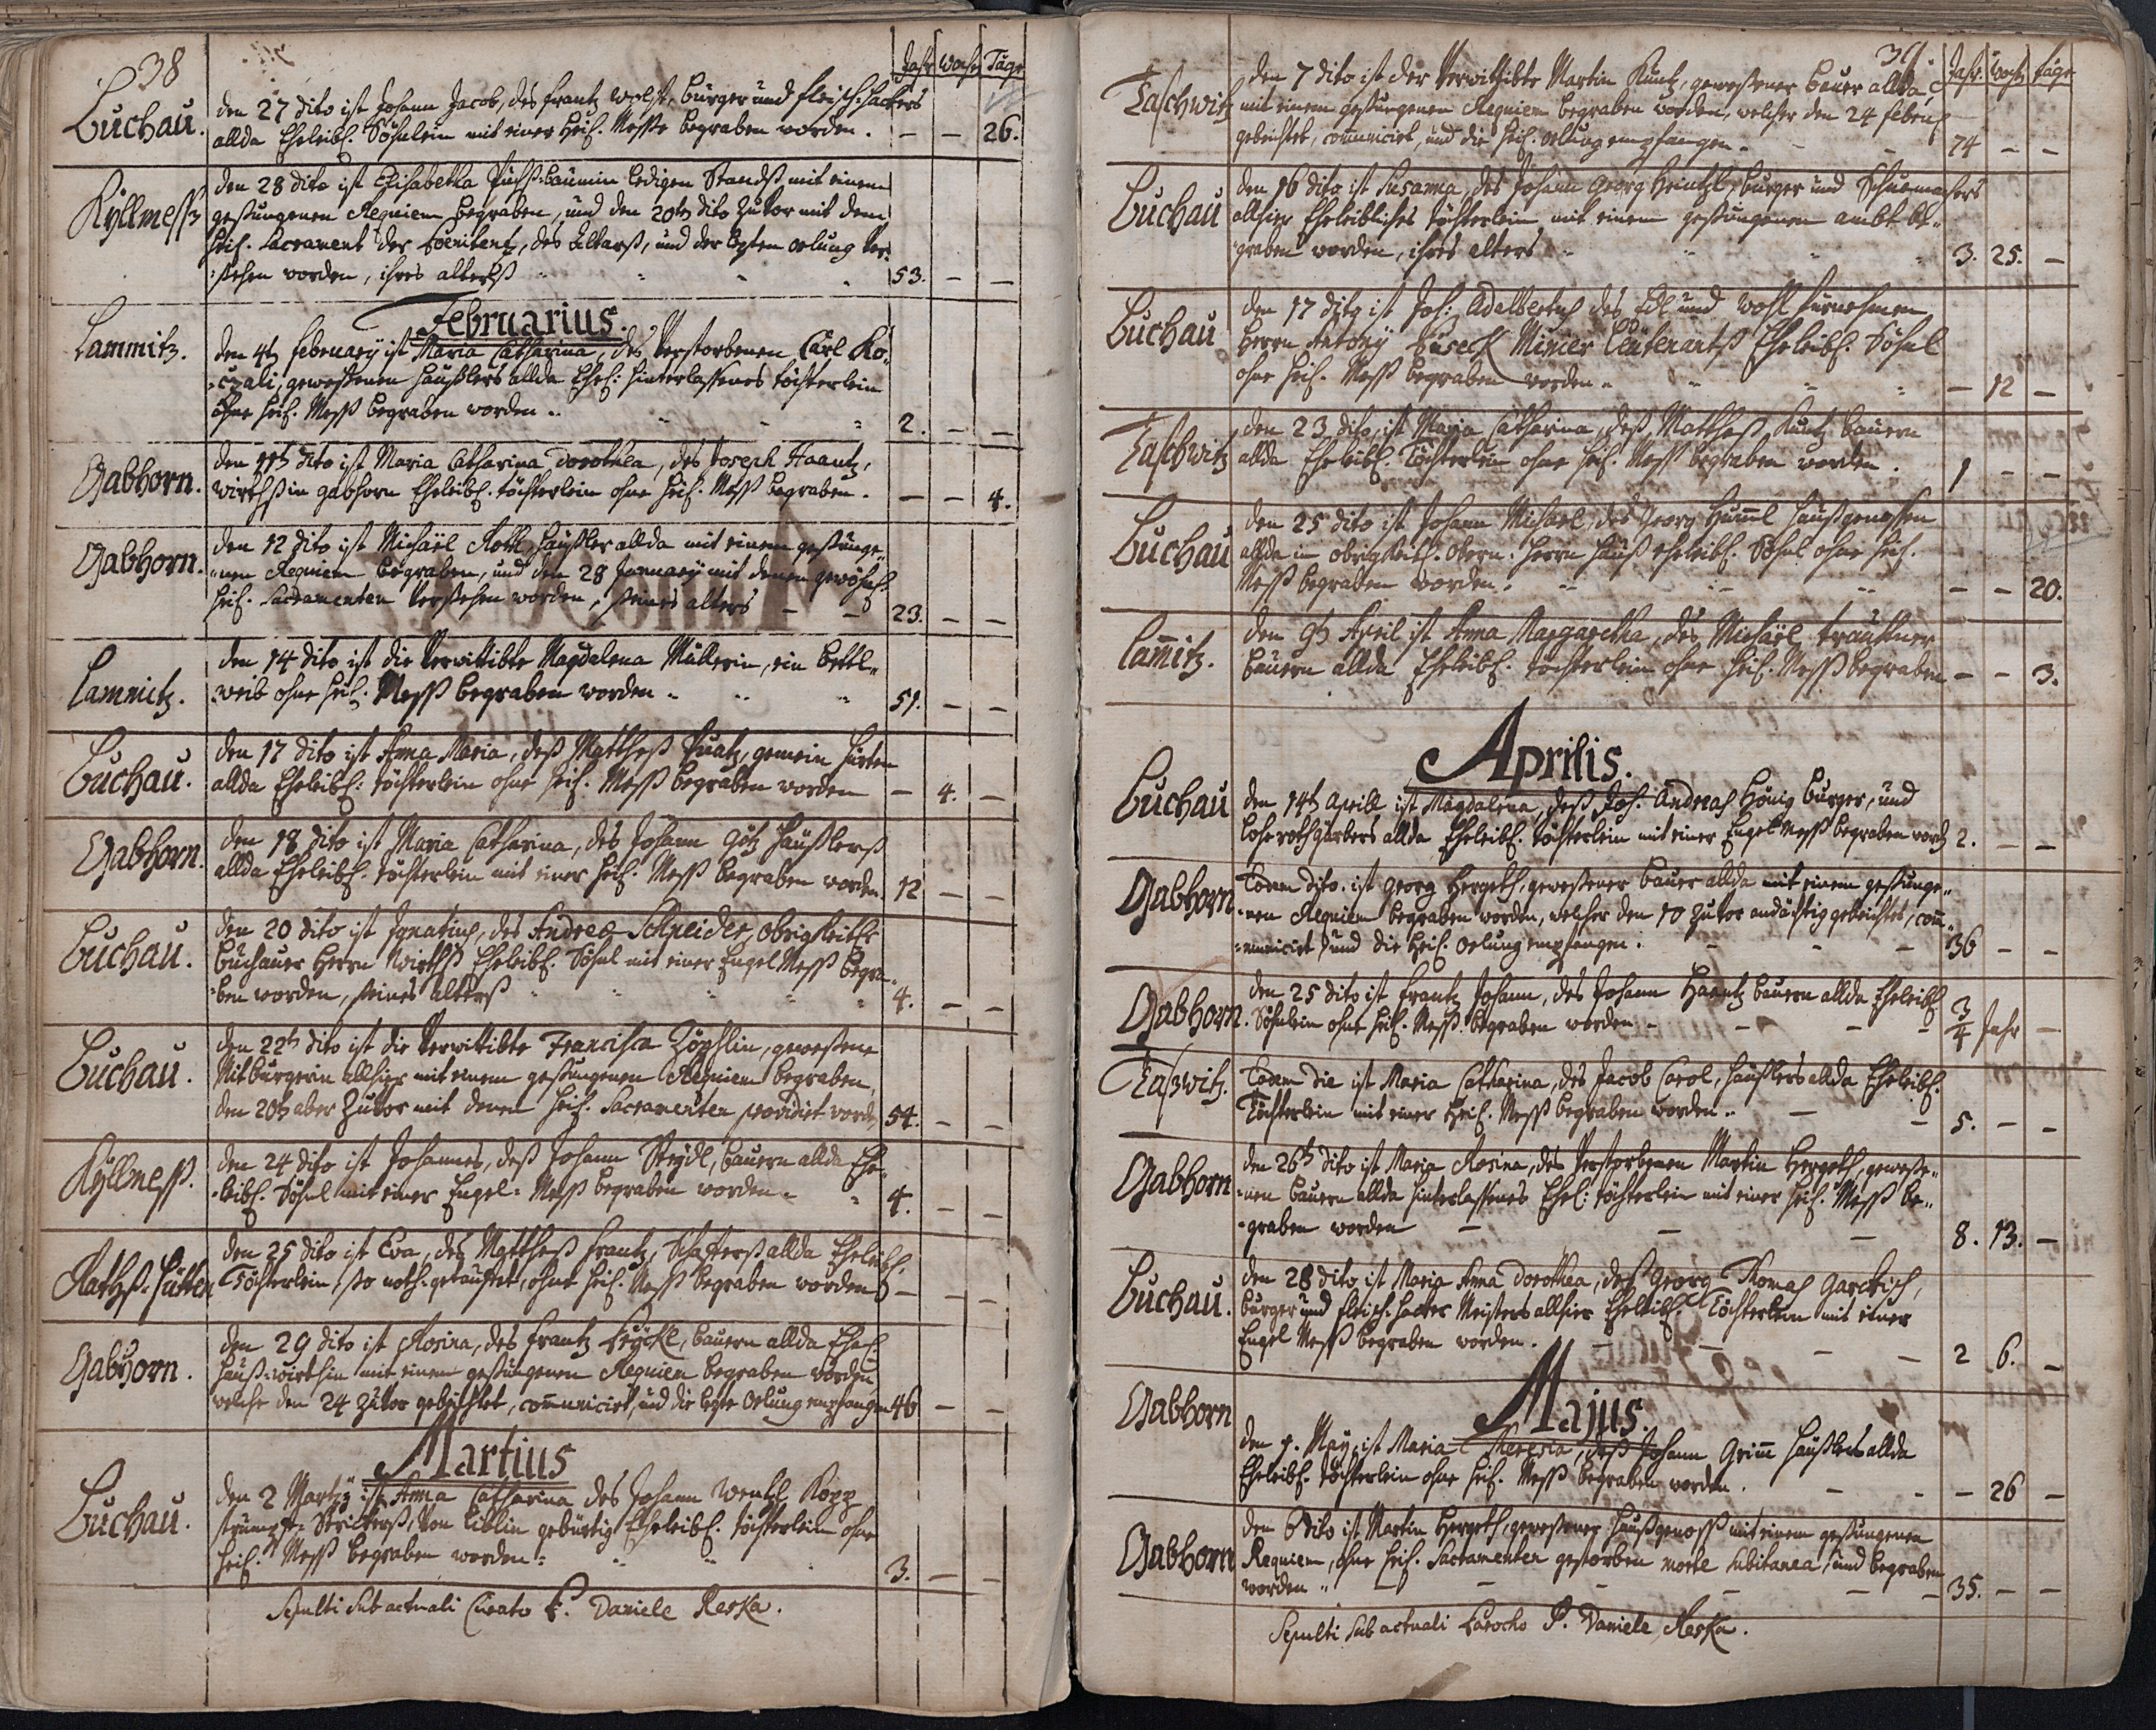 38
Jahr Woch Täge
Luchau. den 27 dito ist Johann Jacob, des Frantz Burger und fleisch-hackers
allda Eheleibl. Söhnlein mit einer heil. Messe begraben worden. — — 26.
Kyllmess den 28 dito ist Elisabetha ledigen Standß mit einem
gesungenen Requiem begraben, und den 20th dito zuvor mit dem
heil. Sacrament der Poenitentz, des Altarß, und der lezten oelung ver-
sehen worden, ihres alterß 53. — —
Februarius.
Lammitz. den 4th february ist Maria Catharina, des verstorbenen Carl Ko-
czali, geweßenen Häußlers allda Ehel: hinterlassenes töchterlein
ohne heil. Mess begraben worden 2. — —
Gabhorn. den 11th dito ist Maria Catharina Dorothea, des Joseph Haantz,
wirthß in gabhorn Eheleibl. töchterlein ohne heil. Mess begraben. — — 4.
Gabhorn. den 12 dito ist Michaël Roth Häußler allda mit einem gesunge-
nen Requiem begraben, und den 28 January mit denen gewöhnl.
heil. Sacramenten versehen worden, seines alters 23. — —
Lamnitz. den 14 dito ist die verwittibte Magdalena Müllerin, ein bettl-
weib ohne heil. Mess begraben worden 51. — —
Luchau. den 17 dito ist Anna Maria, deß Mattheß gemein hirten
allda Eheleibl: töchterlein ohne heil. Mess begraben worden — 4. —
Gabhorn. den 18 dito ist Maria Catharina, des Johann Götz Häußlerß
allda Eheleibl. töchterlein mit einer heil. Mess begraben worden 12 — —
Luchau. den 20 dito ist Ignatius, des Andreæ Schneider, obrigkeitl.
Buchauer Herrn Wirthß Eheleibl. Söhnl mit einer Engel Mess begra-
ben worden, seines alterß 4. — —
Luchau. den 22th dito ist die verwittibte Francisca Zöphlin, geweßene
Mitburgerin allhier mit einem gesungenen Requiem begraben,
den 20th aber zuvor mit denen heil. Sacramenten providirt word. 54. — —
Kyllmess. den 24 dito ist Johannes, deß Johann Steydl, bauern allda Ehe-
leibl. Söhnl mit einer Engel-Mess begraben worden 4. — —
Rathß-hütten den 25 dito ist Eva, des Mattheß Frantz, Schafferß allda Eheleibl.
Töchterlein, so noth-getauffet, ohne heil. Mess begraben worden — — —
Gabhorn. den 29 dito ist Rosina, des Frantz bauern allda Ehel.
Hauß-wirthin mit einem gesungenen Requiem begraben worden,
welche den 24 zuvor gebeichtet, communicirt, und die lezte oelung empfangen 46 — —
Martius
Luchau. den 2 Martij ist Anna Catharina des Johann Wentzl Kopp
strümpf-Strickerß, von Liblin gebürtig Eheleibl. töchterlein ohne
heil. Mess begraben worden 3. — —
Sepulti sub actuali Curato P. Daniele Reska.
39.
Jahr. Woch. täge
Taschwitz den 7 dito ist der verwittibte Martin Kuntz, geweßener bauer allda,
mit einem gesungenen Requiem begraben worden, welcher den 24 febru
gebeichtet, communicirt, und die heil. oelung empfangen. 74 — —
Luchau den 16 dito ist Susanna, des Johann Georg Heintzl, burger und Schuemachers
allhier Eheleibliches töchterlein mit einem gesungenen ambt be-
graben worden, ihres alters 3. 25. —
Luchau den 17 dito ist Joh: Adalbertus des Edl und wohl fürnehmen
Herrn Antony Miner Leutenantß Eheleibl. Söhnl
ohne heil. Mess begraben worden — 12 —
Taschwitz den 23 dito, ist Maria Catharina, deß Mattheß Kuntz bauern
allda Eheleibl. Töchterlein ohne heil. Mess begraben worden. 1 — —
Luchau den 25 dito ist Johann Michael, des Georg Huml haußgenossen
allda in obrigkeitl. obern. herrn hauß eheleibl. Söhnl ohne heil.
Mess begraben worden. — — 20.
Lamitz. den 9th April ist Anna Margaretha, des Michaël
bauern allda Eheleibl. töchterlein ohne heil. Mess begraben — — 3.
Aprilis.
Luchau den 14th Aprill ist Magdalena, deß Joh. Andreas Hönig burger, und
Lohe rothgärbers allda Eheleibl. töchterlein mit einer Engel Mess begraben word 2. — —
Gabhorn Eodem dito. ist Georg Hergeth, geweßener bauer allda mit einem gesunge-
nen Requiem begraben worden, welcher den 10 zuvor andächtig gebeichtet, com-
municirt, und die heil. oelung empfangen. 36 — —
Gabhorn. den 25 dito ist Frantz Johann, des Johann Haantz bauern allda Eheleibl.
Söhnlein ohne heil. Mess. begraben worden 3/4 Jahr —
Taßwitz. Eodem die ist Maria Catharina, des Jacob Carol, häußlers allda Eheleibl.
Töchterlein mit einer heil. Mess begraben worden 5. — —
Gabhorn den 26th dito ist Maria Rosina, des verstorbenen Martin Hergeth, geweße-
nen bauern allda hinterlassenes Ehel: töchterlein mit einer heil. Mess be-
graben worden 8. 13. —
Luchau. den 28 dito ist Maria Anna Dorothea, deß Georg Thomas Garckisch,
burger und fleisch-hacker Meisters allhier Eheleibl. Töchterlein mit einer
Engel Mess begraben worden. 2 6. —
Majus.
Gabhorn den 4. May ist Maria Theresia, deß Johann Grim Häußlers allda
Eheleibl. töchterlein ohne heil. Mess begraben worden. — 26 —
Gabhorn den 6 dito ist Martin Hergeth, geweßener haußgenoss mit einem gesungenen
Requiem, ohne heil. Sacramenten gestorben morte subitanea, und begraben
worden 35. — —
Sepulti sub actuali Parocho P. Daniele Reska.